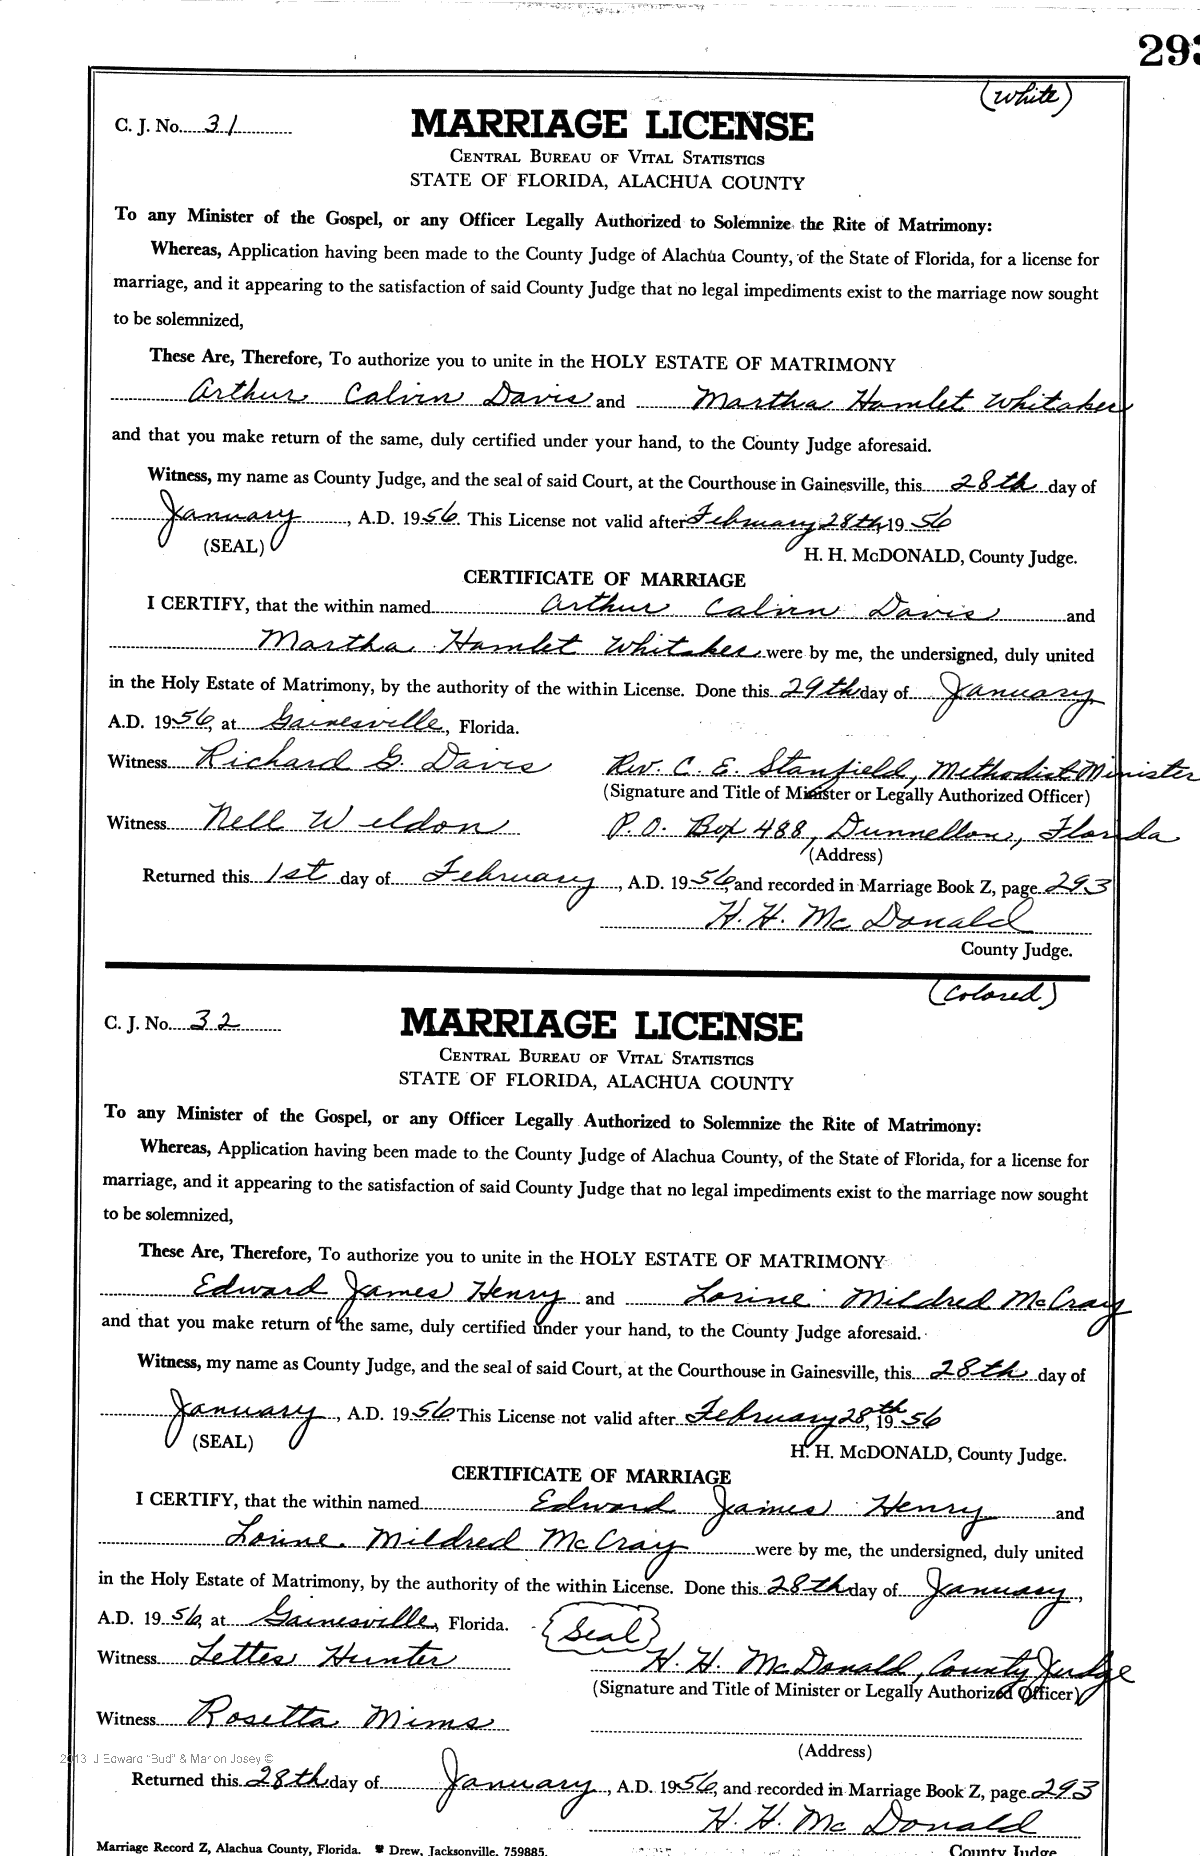 293
(White)
C. J. No. 31
MARRIAGE LICENSE
CENTRAL BUREAU OF VITAL STATISTICS
STATE OF FLORIDA, ALACHUA COUNTY
To any Minister of the Gospel, or any Officer Legally Authorized to Solemnize the Rite of Matrimony:
Whereas, Application having been made to the County Judge of Alachua County, of the State of Florida, for a license for
marriage, and it appearing to the satisfaction of said County Judge that no legal impediments exist to the marriage now sought
to be solemnized,
These Are, Therefore, To authorize you to unite in the HOLY ESTATE OF MATRIMONY
Arthur Calvin Davis and Martha Hamlet Whitaker
and that you make return of the same, duly certified under your hand, to the County Judge aforesaid.
Witness, my name as County Judge, and the seal of said Court, at the Courthouse in Gainesville, this 28th day of
January, A.D. 1956. This License not valid after February 28th, 1956
(SEAL) H. H. McDONALD, County Judge.
CERTIFICATE OF MARRIAGE
I CERTIFY, that the within named Arthur Calvin Davis and
Martha Hamlet Whitaker were by me, the undersigned, duly united
in the Holy Estate of Matrimony, by the authority of the within License. Done this 29th day of January
A.D. 1956, at Gainesville, Florida.
Witness Richard G. Davis Rev. C. E. Stanfield, Methodist Minister
(Signature and Title of Minister or Legally Authorized Officer)
Witness Nell Weldon P.O. Box 488, Dunnellon, Florida
(Address)
Returned this 1st day of February, A.D. 1956, and recorded in Marriage Book Z, page 293
H. H. McDonald
County Judge.
(Colored)
C. J. No. 32
MARRIAGE LICENSE
CENTRAL BUREAU OF VITAL STATISTICS
STATE OF FLORIDA, ALACHUA COUNTY
To any Minister of the Gospel, or any Officer Legally Authorized to Solemnize the Rite of Matrimony:
Whereas, Application having been made to the County Judge of Alachua County, of the State of Florida, for a license for
marriage, and it appearing to the satisfaction of said County Judge that no legal impediments exist to the marriage now sought
to be solemnized,
These Are, Therefore, To authorize you to unite in the HOLY ESTATE OF MATRIMONY
Edward James Henry and Lorine Mildred McCray
and that you make return of the same, duly certified under your hand, to the County Judge aforesaid.
Witness, my name as County Judge, and the seal of said Court, at the Courthouse in Gainesville, this 28th day of
January, A.D. 1956 This License not valid after February 28th, 1956
(SEAL) H. H. McDONALD, County Judge.
CERTIFICATE OF MARRIAGE
I CERTIFY, that the within named Edward James Henry and
Lorine Mildred McCray were by me, the undersigned, duly united
in the Holy Estate of Matrimony, by the authority of the within License. Done this 28th day of January,
A.D. 1956, at Gainesville, Florida. (Seal)
Witness Lettes Hunter H. H. McDonald, County Judge
(Signature and Title of Minister or Legally Authorized Officer)
Witness Rosetta Mims
(Address)
2013 J Edward "Bud" & Marion Josey ©
Returned this 28th day of January, A.D. 1956, and recorded in Marriage Book Z, page 293
H. H. McDonald
Marriage Record Z, Alachua County, Florida. Drew, Jacksonville, 759885. County Judge